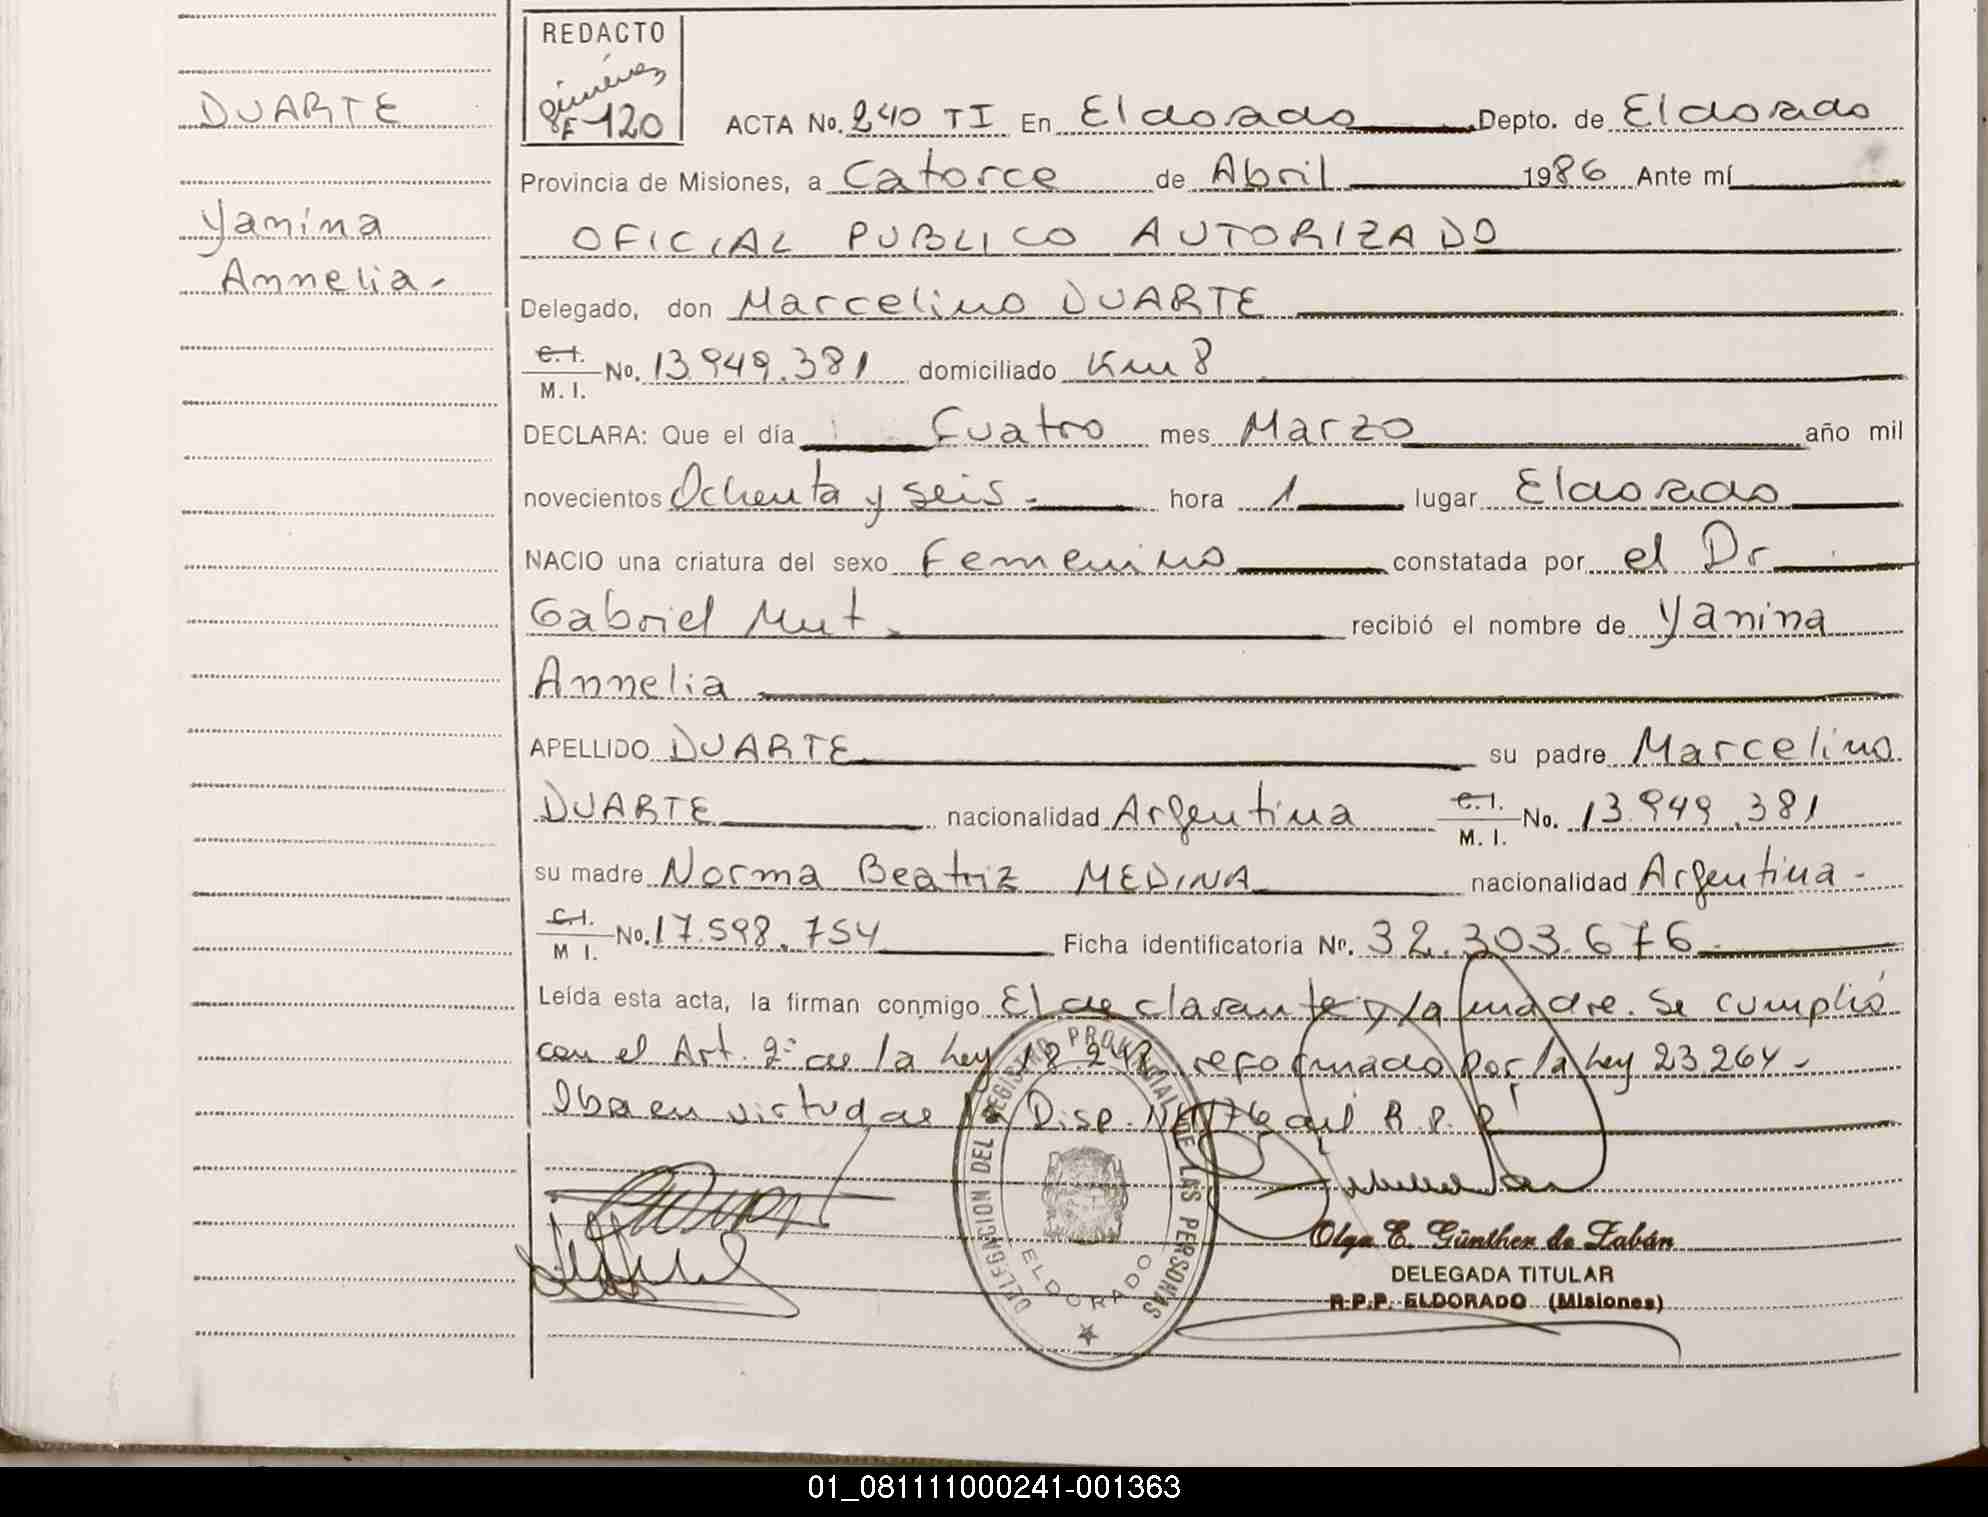 REDACTO
Giménez
8F-120
DUARTE
Yanina
Annelia-
ACTA No. 240 TI En Eldorado Depto. de Eldorado
Provincia de Misiones, a Catorce de Abril 1986 Ante mí
OFICIAL PUBLICO AUTORIZADO
Delegado, don Marcelino DUARTE
C.I. M.I. No. 13.949.381 domiciliado Km 8
DECLARA: Que el día Cuatro mes Marzo año mil
novecientos Ochenta y seis.- hora 1 lugar Eldorado
NACIO una criatura del sexo Femenino constatada por el Dr
Gabriel Mut. recibió el nombre de Yanina
Annelia
APELLIDO DUARTE su padre Marcelino
DUARTE nacionalidad Argentina C.I. M.I. No. 13.949.381
su madre Norma Beatriz MEDINA nacionalidad Argentina-
C.I. M I. No. 17.598.754 Ficha identificatoria No. 32.303.676
Leída esta acta, la firman conmigo El declarante y la madre. Se cumplió
con el Art. 2º de la Ley 18.248 reformado por la Ley 23.264-
Disp. Nº 176 del R.P.P
DELEGACION DEL REGISTRO PROVINCIAL DE LAS PERSONAS
ELDORADO
Olga E. Günther de Labán
DELEGADA TITULAR
R.P.P. ELDORADO (Misiones)
01_081111000241-001363